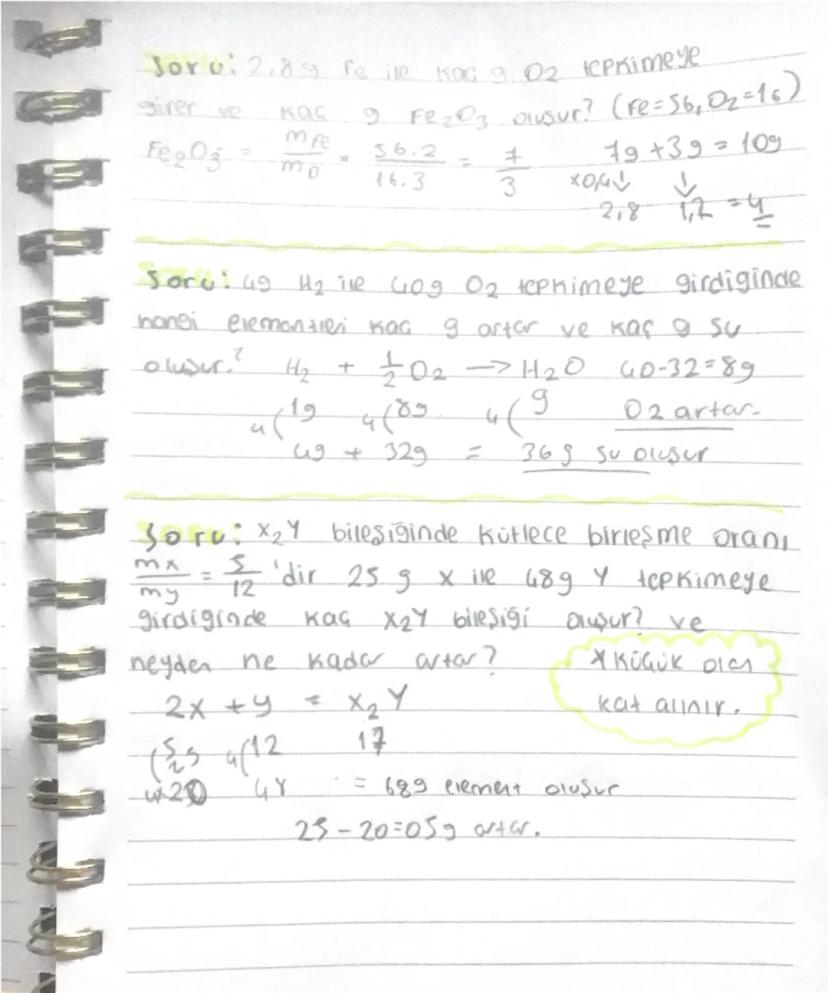 Soru: 2,8g Fe ile kaç g O2 tepkimeye
girer ve kaç g Fe2O3 oluşur? (Fe=56, O2=16)
Fe2O3 = mFe/mO = 56.2/16.3 = 7/3 7g + 3g = 10g
x0,4↓ ↓
2,8 1,2 = 4
Soru: 4g H2 ile 40g O2 tepkimeye girdiginde
hangi elementten kaç g artar ve kaç g su
oluşur? H2 + 1/2 O2 → H2O 40-32=8g
4( 1g 4( 8g 4( 9 O2 artar.
4g + 32g = 36g su oluşur
Soru: X2Y bileşiğinde kütlece birleşme oranı
mx/my = 5/12 'dir 25 g x ile 48g Y tepkimeye
girdiginde kaç X2Y bileşiği oluşur? ve
neyden ne kadar artar? *Küçük olan
2x + y = X2Y kat alınır.
(5 25 4(12 17
4x20 48 = 68g element oluşur
25-20=05g artar.